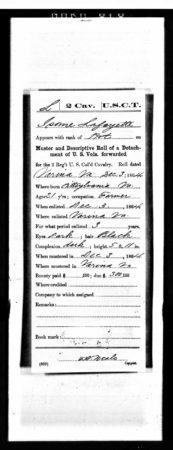 L | 2 Cav. | U.S.C.T.
Isome Lafayette
Appears with rank of on
Muster and Descriptive Roll of a Detachment
of U. S. Vols. forwarded
for the 2 Reg't U. S. Col'd Cavalry. Roll dated
Varina Va. Dec 3, 1864
Where born Va.
Age 21 y'rs; occupation Farmer
When enlisted Dec 3, 1864
Where enlisted Varina Va.
For what period enlisted 3 years.
Eyes Dark; hair Black
Complexion dark; height 5 ft. in.
When mustered in Dec 3, 1864
Where mustered in Varina Va.
Bounty paid $ 100; due $ 100
Where credited
Company to which assigned
Remarks:
Book mark:
Copyist.